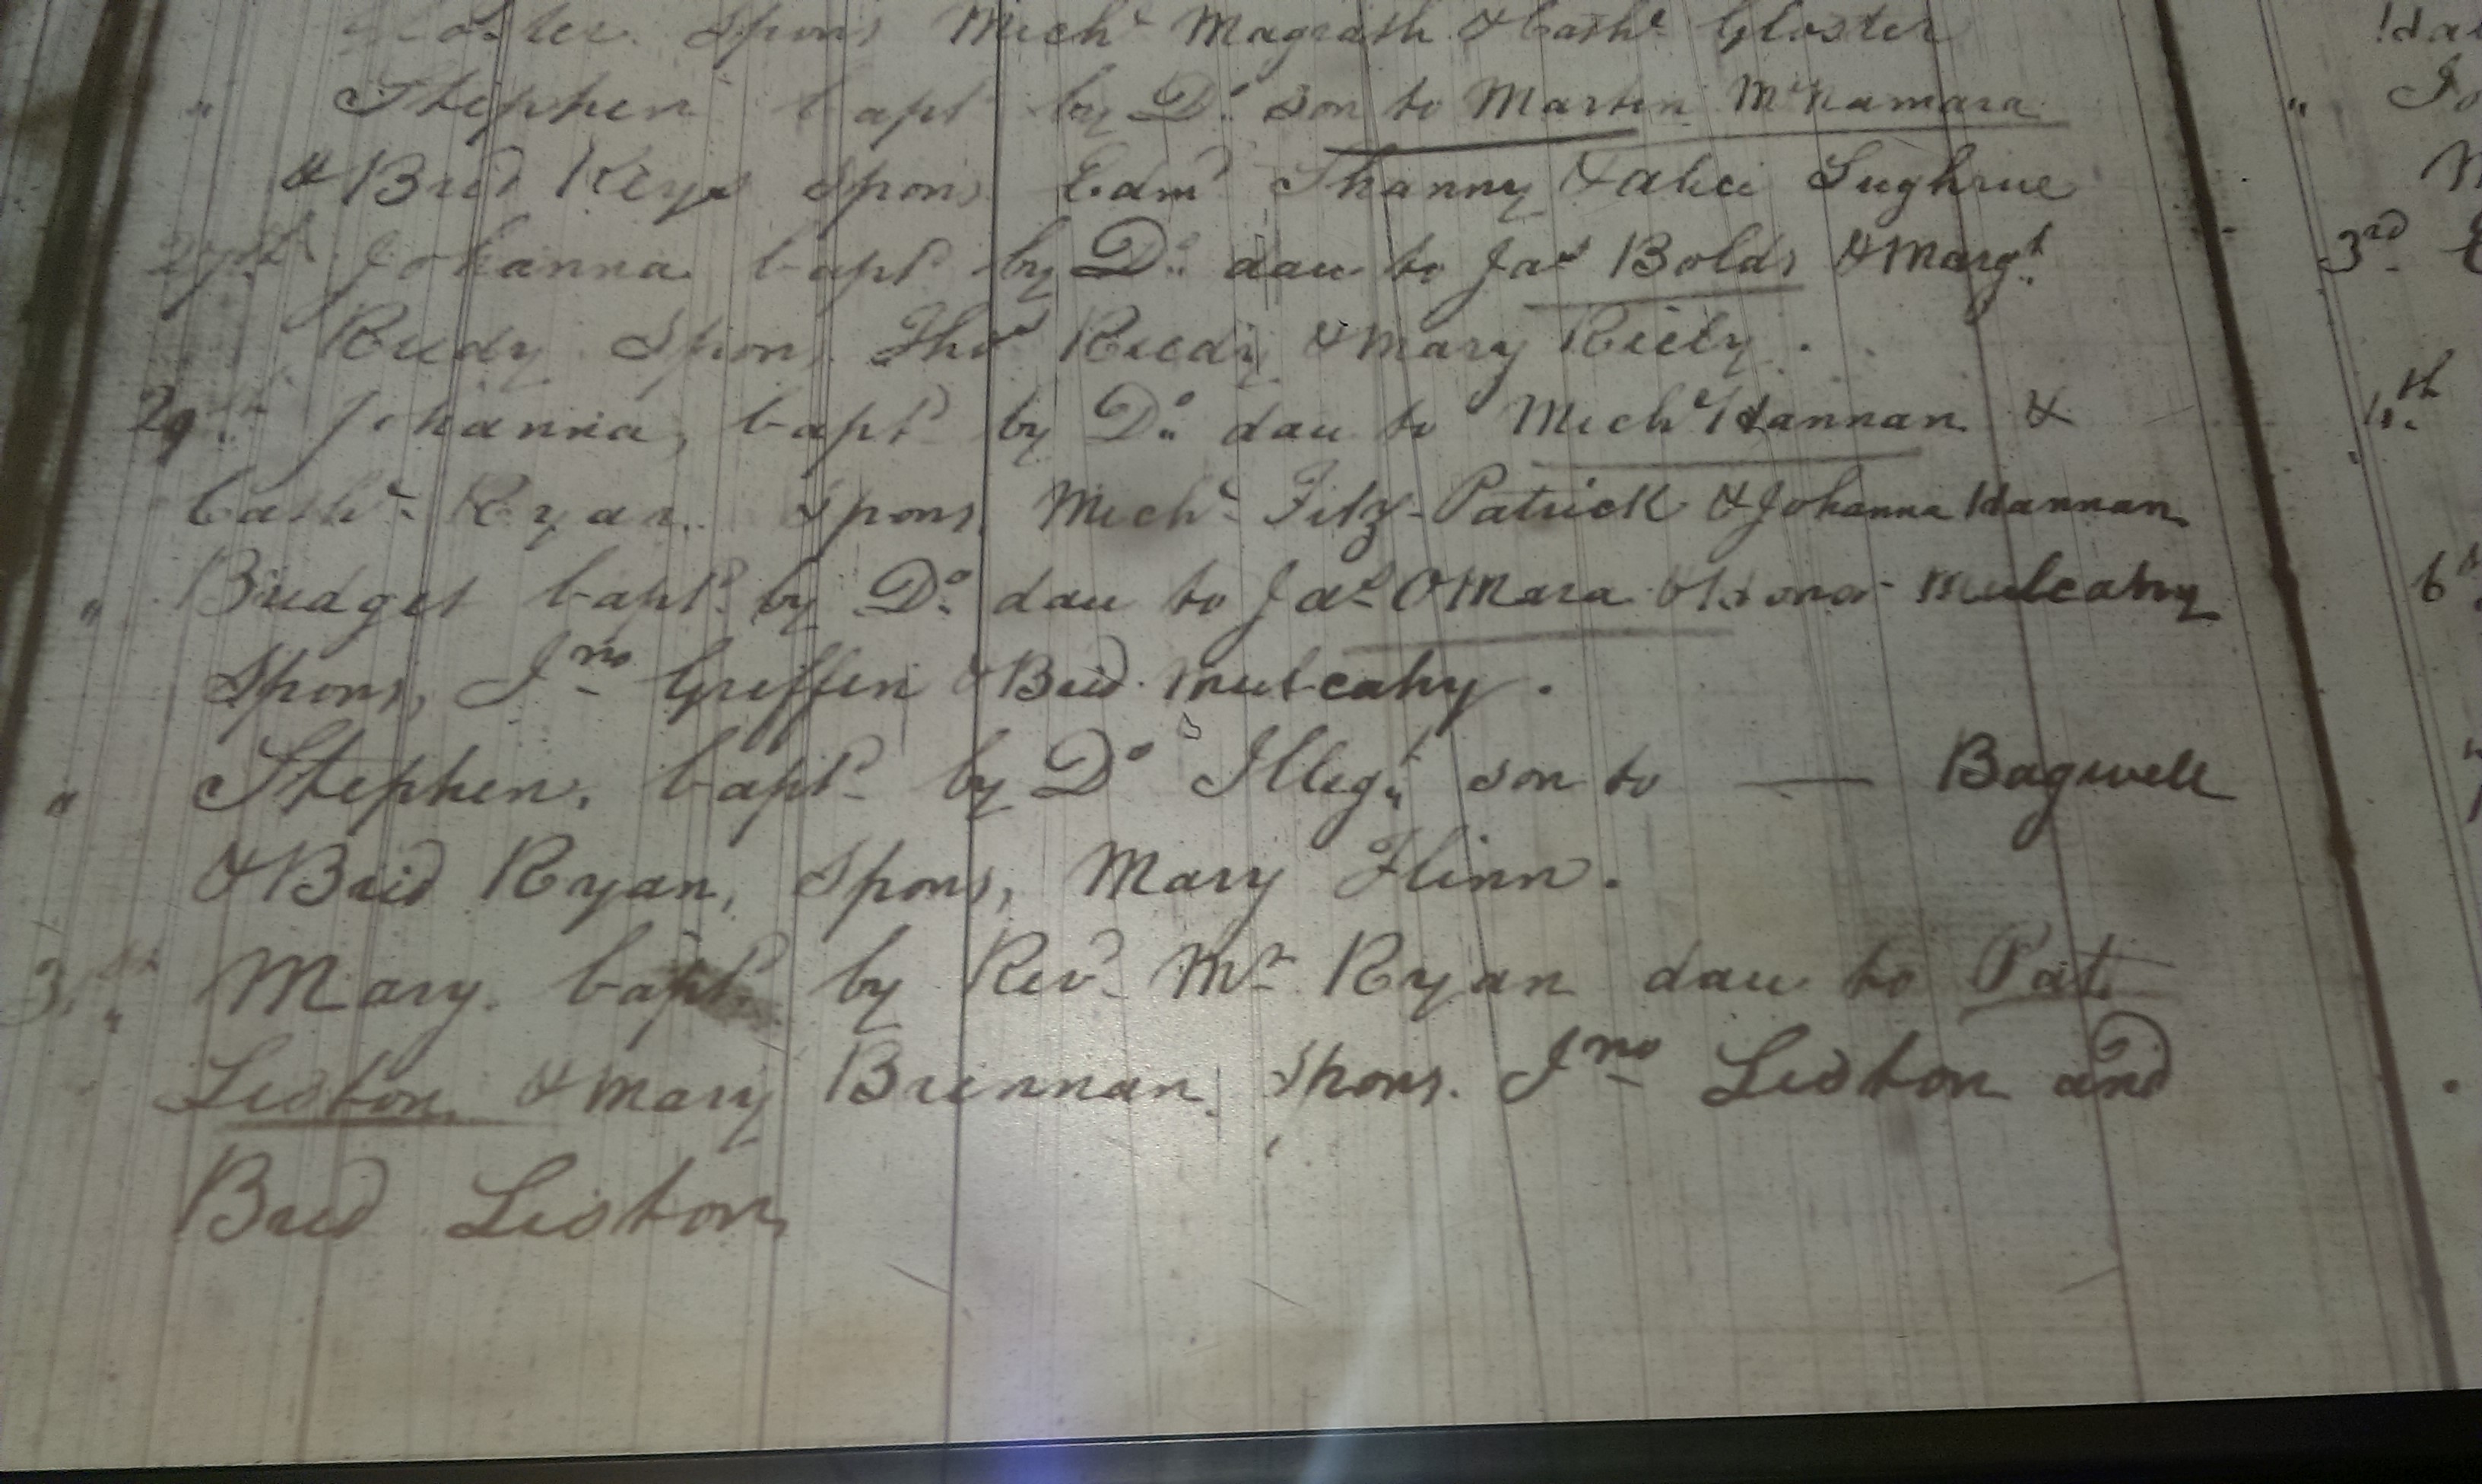 Spons Mich.l Magrath & Cath.e Gloster
" Stephen bapt.d by D.o son to Martin McNamara
& Brid Keys Spons Edm.d Shanny & alice Sughrue
27th Johanna bapt.d by D.o dau to Ja.s Bolds & Marg.t
Reedy Spons, Tho.s Reedy & Mary Riely.
29th Johanna, bapt.d by D.o dau to Mich.l Hannan &
Cath.e Ryan. Spons, Mich.l Fitz-Patrick & Johanna Hannan
" Bridget bapt.d by D.o dau to Ja.s OMara & Hona Mulcahy
Spons, Jno Griffin & Brid Mulcahy.
" Stephen, bapt.d by D.o Illeg.t son to — Bagwell
& Brid Ryan, Spons, Mary Flinn.
Mary. bapt.d by Rev.d Mr Ryan dau to Pat
Liston & Mary Brennan. Spons. Jno Liston and
Brid Liston
3rd
4th